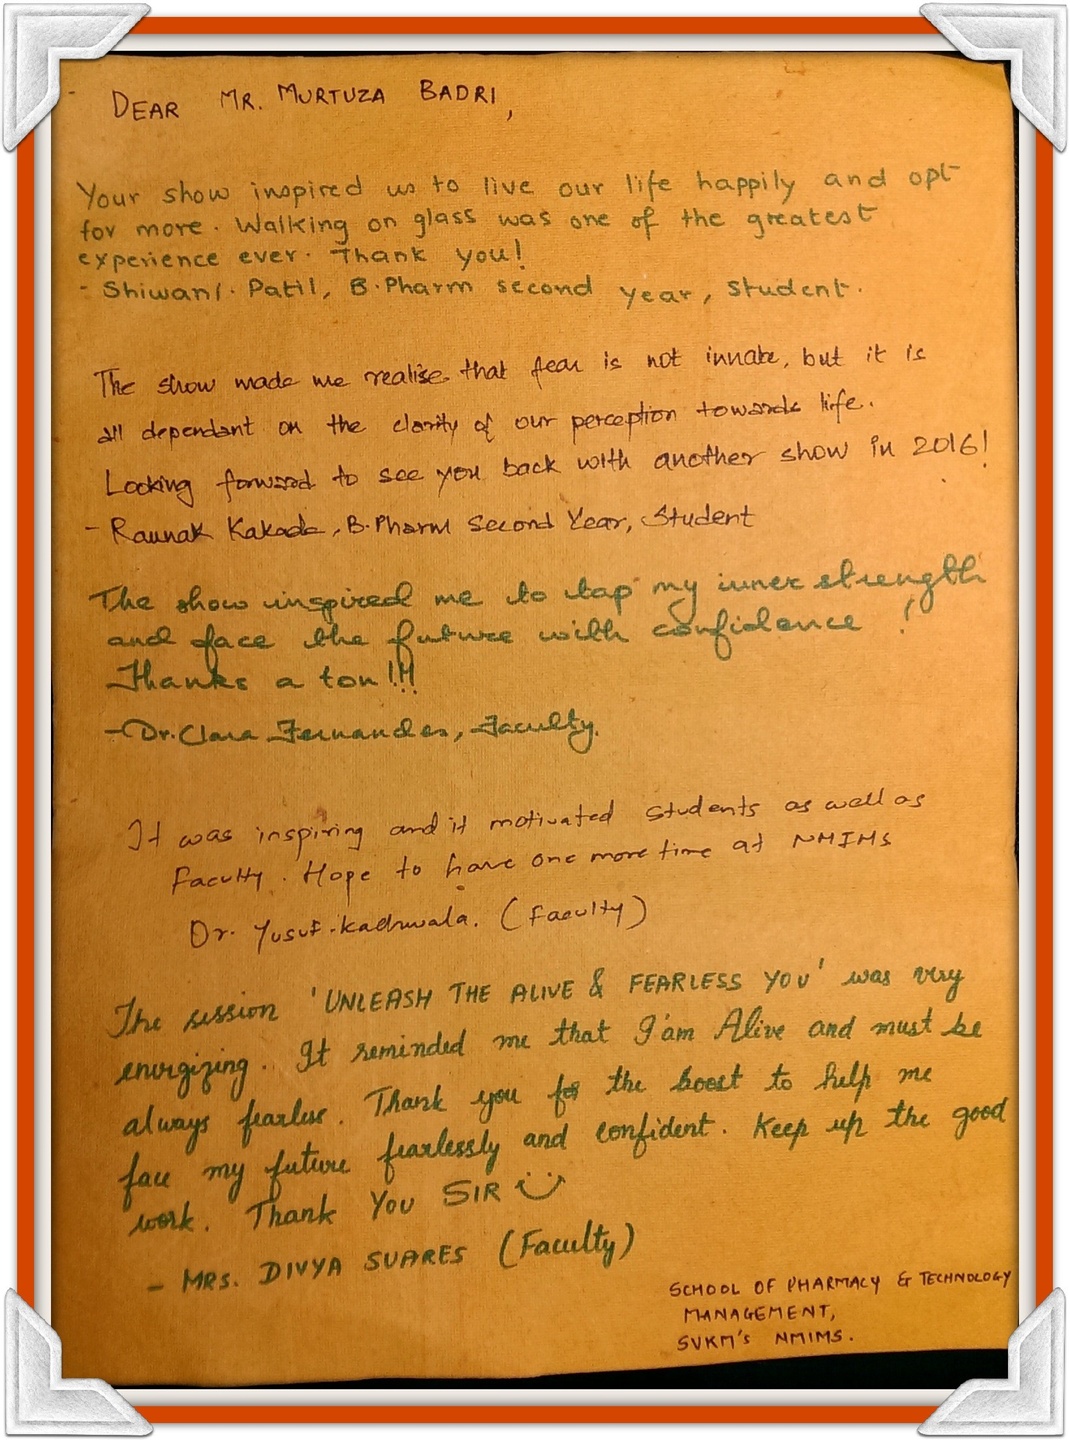 DEAR MR. MURTUZA BADRI,
Your show inspired us to live our life happily and opt
for more. Walking on glass was one of the greatest
experience ever. Thank you!
- Shiwani. Patil, B.Pharm second year, student.
The show made me realise that fear is not innate, but it is
all dependant on the clarity of our perception towards life.
Looking forward to see you back with another show in 2016!
- Raunak Kakade, B.Pharm Second Year, Student
The show inspired me to tap my inner strength
and face the future with confidence!
Thanks a ton!!!
- Dr. Clara Fernandes, Faculty.
It was inspiring and it motivated students as well as
Faculty. Hope to have one more time at NMIMS
Dr. Yusuf. Kachwala. (Faculty)
The session 'UNLEASH THE ALIVE & FEARLESS YOU' was very
energizing. It reminded me that I'am Alive and must be
always fearless. Thank you for the boost to help me
face my future fearlessly and confident. Keep up the good
work. Thank You SIR
- MRS. DIVYA SUARES (Faculty)
SCHOOL OF PHARMACY & TECHNOLOGY
MANAGEMENT,
SVKM's NMIMS.